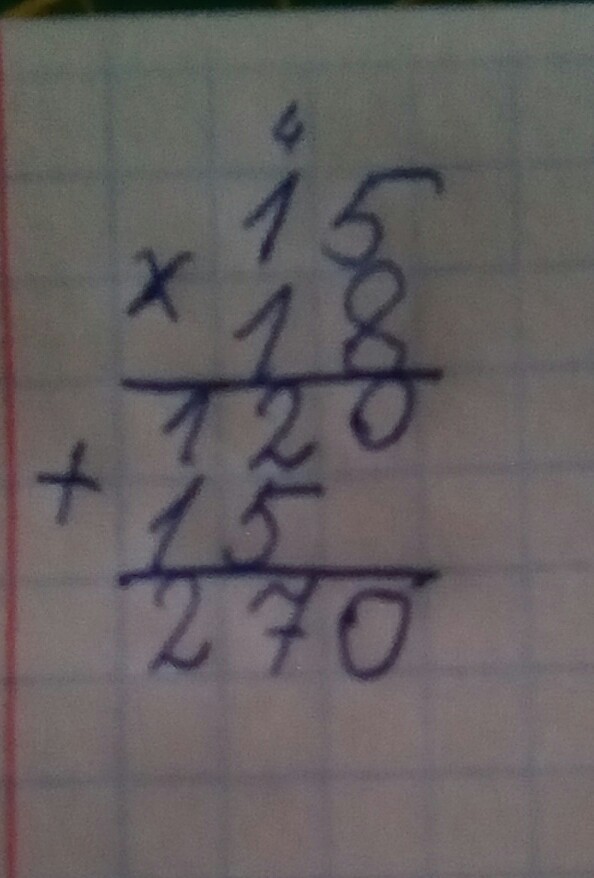 4
15
× 18
120
+ 15
270